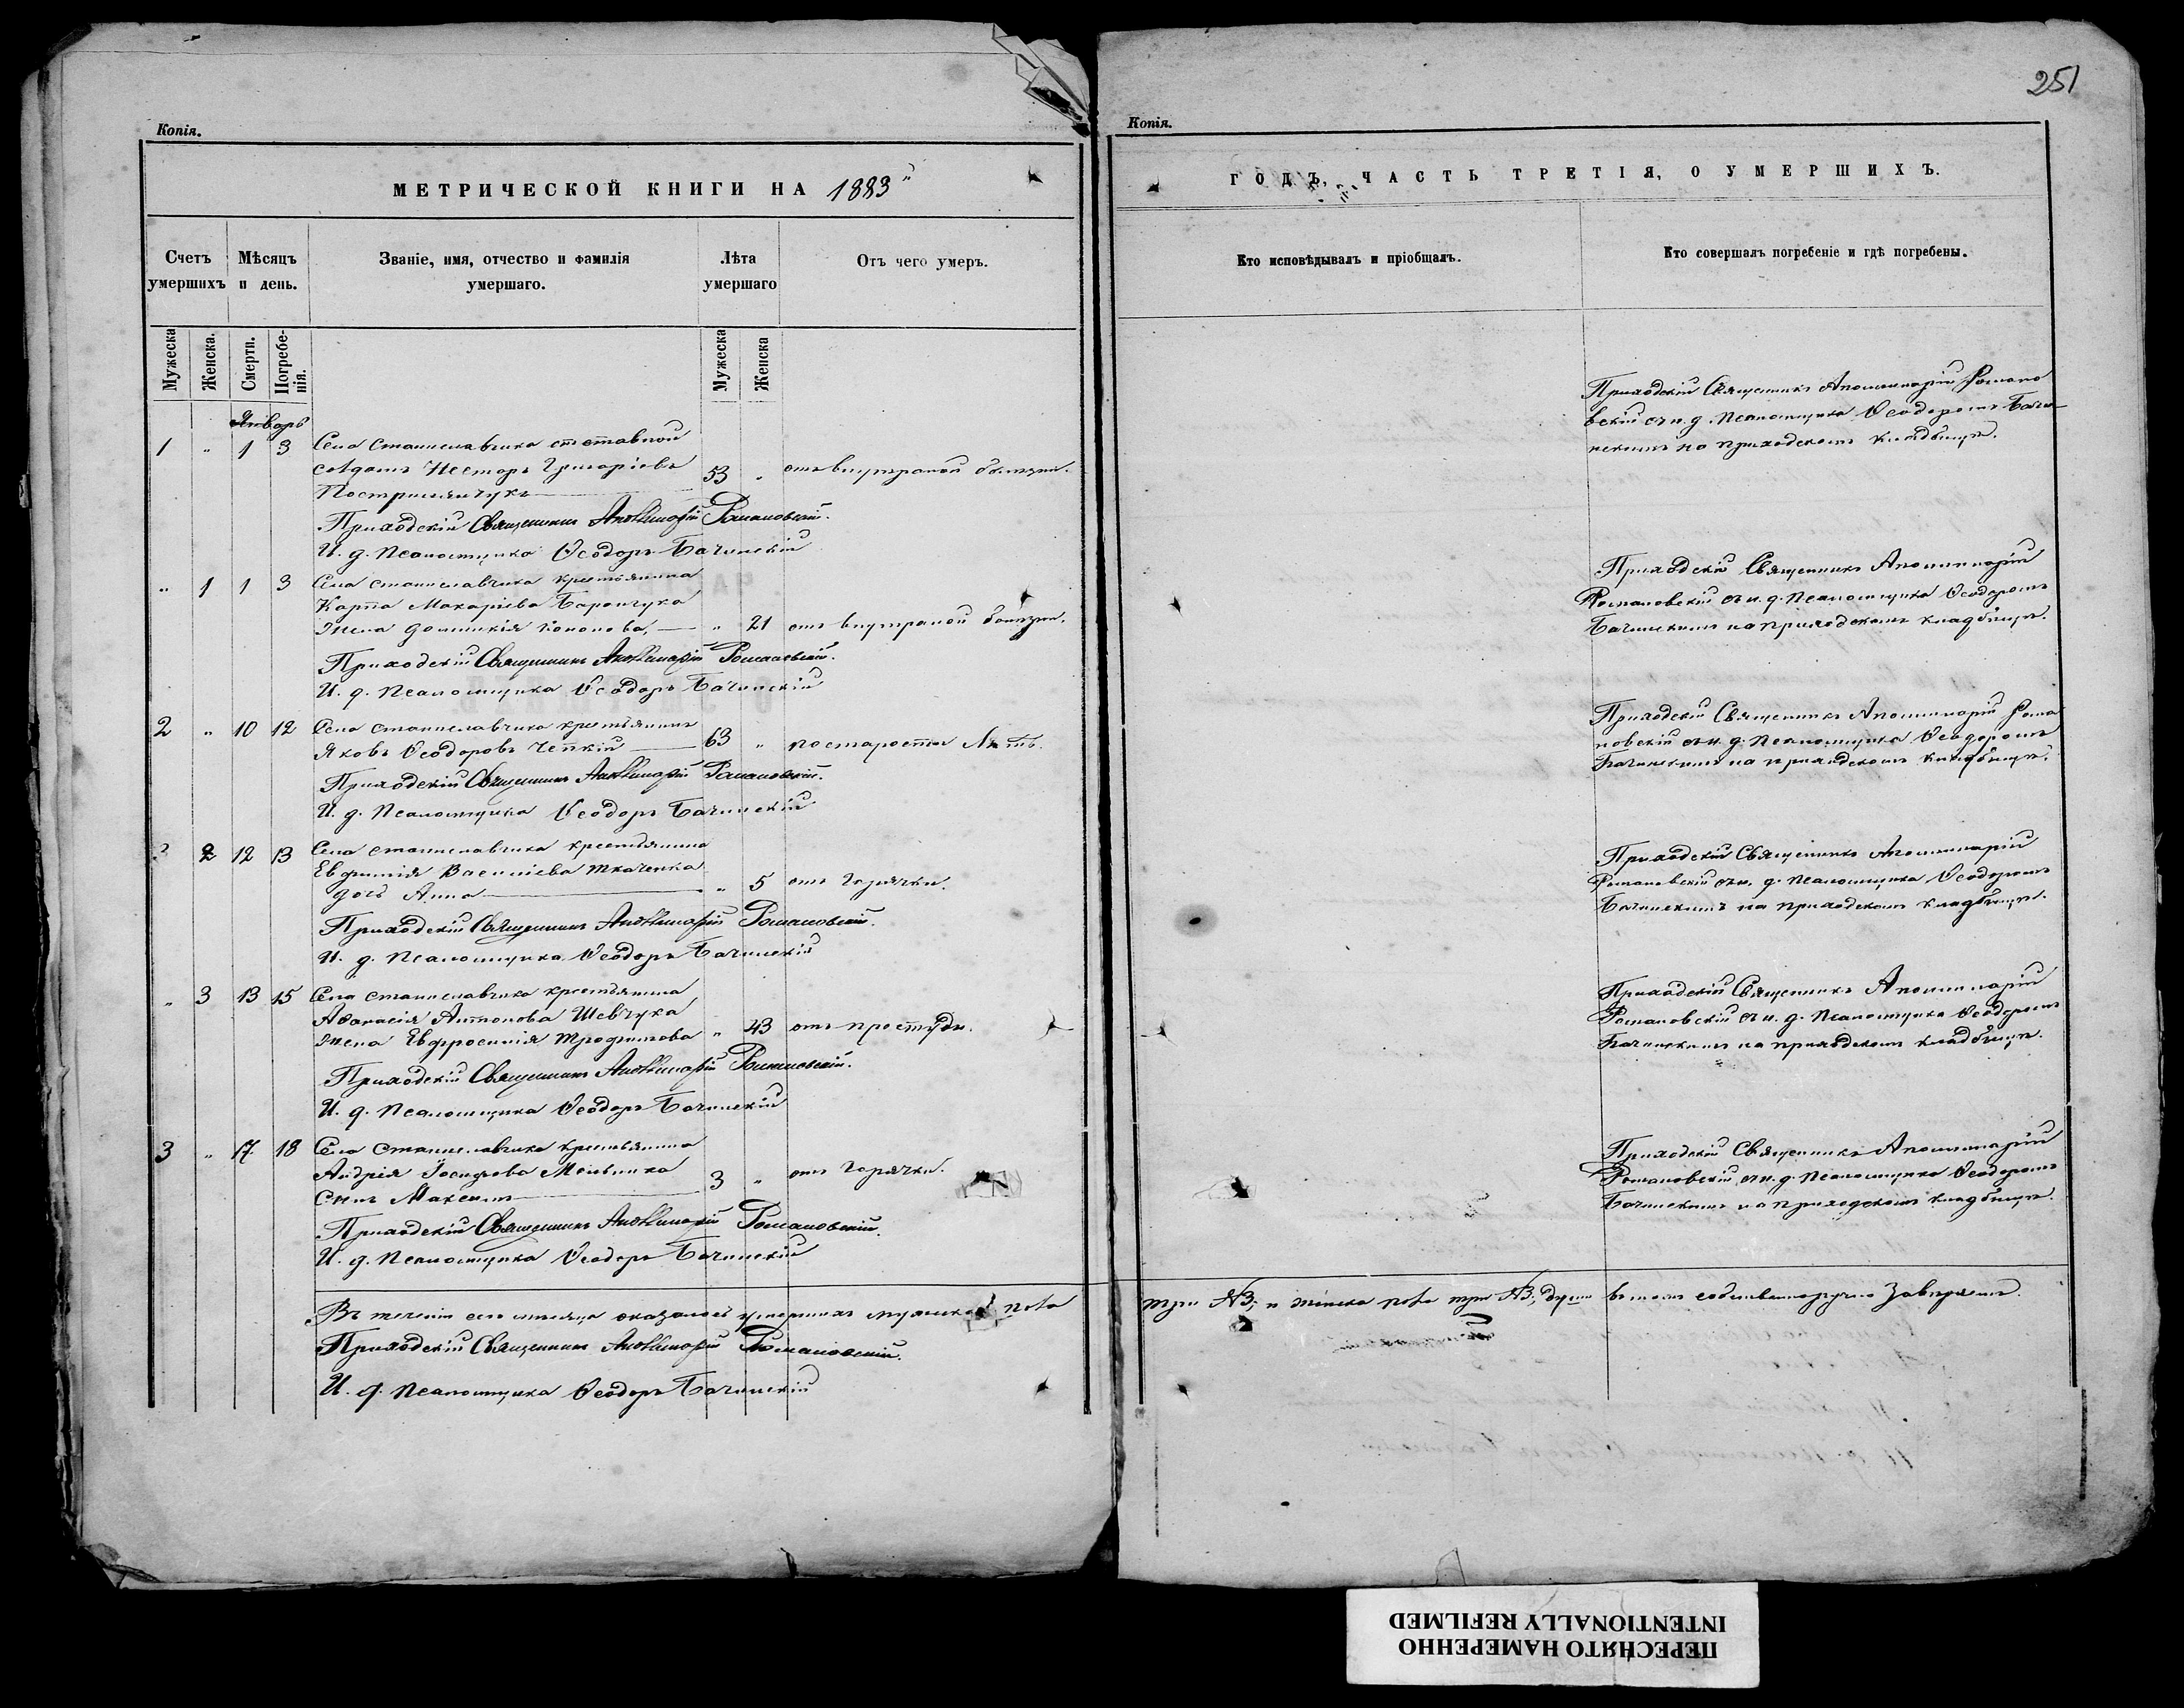 Копія.
МЕТРИЧЕСКОЙ КНИГИ НА 1883
Счетъ умершихъ
Мѣсяцъ и день.
Званіе, имя, отчество и фамилія умершаго.
Лѣта умершаго
Отъ чего умеръ.
Мужеска
Женска.
Смерти.
Погребенія.
Мужеска
Женска
Январь
1 " 1 3 Села Станиславчика отставной
солдатъ Несторъ Григоріевъ 53 " отъ внутреной болезни.
Приходскій Священникъ Аполлинарій Романовскій.
И. д. Псаломщика Ѳеодоръ Бачинскій
" 1 1 3 Села Станиславчика крестьянина
Карпа Макаріева Барончука
жена Домникія Кононова, " 21 отъ внутреной болезни.
Приходскій Священникъ Аполлинарій Романовскій.
И. д. Псаломщика Ѳеодоръ Бачинскій
2 " 10 12 Села Станиславчика крестьянинъ
Яковъ Ѳеодоровъ 63 " по старости Летъ.
Приходскій Священникъ Аполлинарій Романовскій.
И. д. Псаломщика Ѳеодоръ Бачинскій
2 12 13 Села Станиславчика крестьянина
Евфимія Василіева Ткаченка
дочь Анна " 5 отъ Горячки.
Приходскій Священникъ Аполлинарій Романовскій.
И. д. Псаломщика Ѳеодоръ Бачинскій
" 3 13 15 Села Станиславчика крестьянина
Афанасія Антонова Шевчука
жена Евфросинія Трофимова " 43 отъ простуды.
Приходскій Священникъ Аполлинарій Романовскій.
И. д. Псаломщика Ѳеодоръ Бачинскій
3 " 17 18 Села Станиславчика крестьянина
Андрія Іосифова Мельника
Сынъ Максимъ 3 " отъ Горячки.
Приходскій Священникъ Аполлинарій Романовскій.
И. д. Псаломщика Ѳеодоръ Бачинскій
Въ теченіи сего месяца оказалось умершихъ мужеска пола
Приходскій Священникъ Аполлинарій Романовскій.
И. д. Псаломщика Ѳеодоръ Бачинскій
251
Копія.
ГОДЪ, ЧАСТЬ ТРЕТІЯ, О УМЕРШИХЪ.
Кто исповѣдывалъ и пріобщалъ.
Кто совершалъ погребеніе и гдѣ погребены.
Приходскій Священникъ Аполлинарій Романо
вскій съ и. д. Псаломщика Ѳеодоромъ Бачи
нскимъ на приходскомъ кладбищи.
Приходскій Священникъ Аполлинарій
Романовскій съ и. д. Псаломщика Ѳеодоромъ
Бачинскимъ на приходскомъ кладбищи.
Приходскій Священникъ Аполлинарій Рома
новскій съ и. д. Псаломщика Ѳеодоромъ
Бачинскимъ на приходскомъ кладбищи.
Приходскій Священникъ Аполлинарій
Романовскій съ и. д. Псаломщика Ѳеодоромъ
Бачинскимъ на приходскомъ кладбищи.
Приходскій Священникъ Аполлинарій
Романовскій съ и. д. Псаломщика Ѳеодоромъ
Бачинскимъ на приходскомъ кладбищи.
Приходскій Священникъ Аполлинарій
Романовскій съ и. д. Псаломщика Ѳеодоромъ
Бачинскимъ на приходскомъ кладбищи.
три №3; и женска пола три №3, душъ въ томъ собственноручно Заверяемъ.
ПЕРЕСНЯТО НАМЕРЕННО
INTENTIONALLY REFILMED